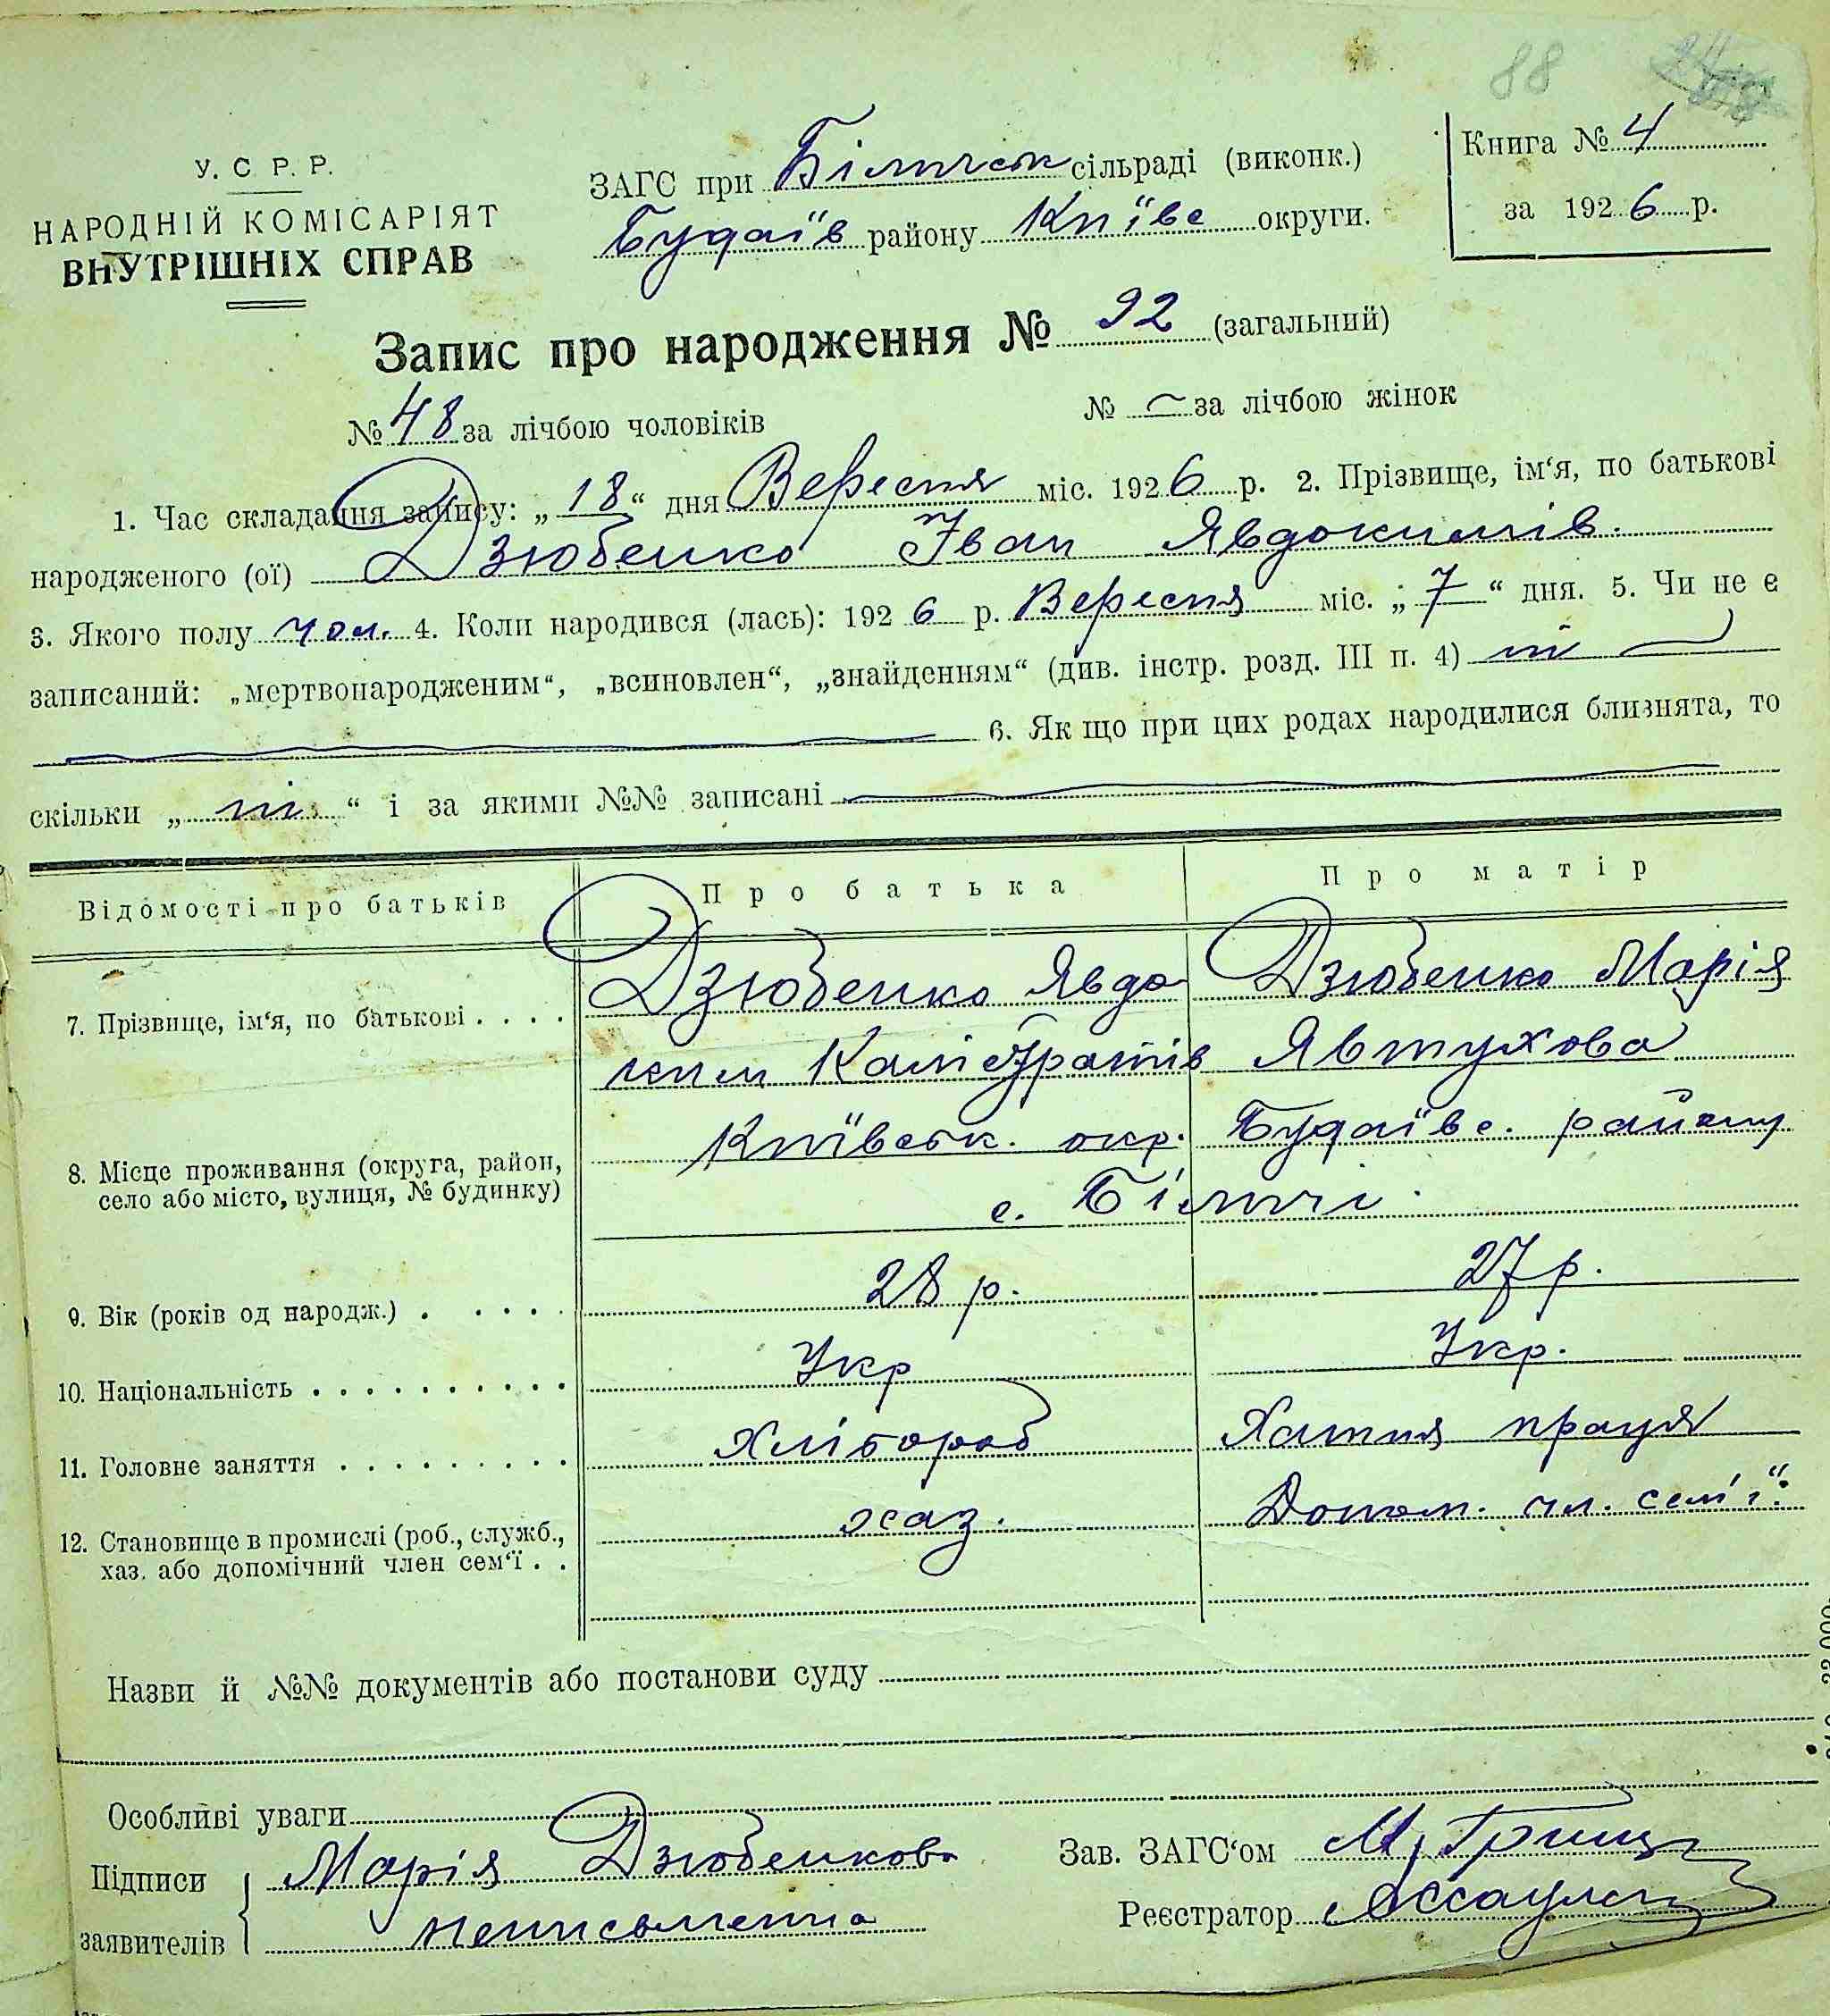 88
У. С. Р. Р.
НАРОДНІЙ КОМІСАРІЯТ
ВНУТРІШНІХ СПРАВ
ЗАГС при Біличськ сільраді (виконк.)
Будаїв району Київс округи.
Книга № 4
за 1926 р.
Запис про народження № 92 (загальний)
№ 48 за лічбою чоловіків № — за лічбою жінок
1. Час складання запису: „18“ дня Вересня міс. 1926 р. 2. Прізвище, ім‘я, по батькові
народженого (ої) Дзюбенко Іван Явдокимів.
3. Якого полу чол. 4. Коли народився (лась): 1926 р. Вересня міс. „7“ дня. 5. Чи не є
записаний: „мертвонародженим“, „всиновлен“, „знайденням“ (див. інстр. розд. III п. 4) ні
6. Як що при цих родах народилися близнята, то
скільки „ні“ і за якими №№ записані
Відомості про батьків Про батька Про матір
7. Прізвище, ім‘я, по батькові . . . . Дзюбенко Явдо Дзюбенко Марія
ким Калістратів Явтухова
8. Місце проживання (округа, район, село або місто, вулиця, № будинку) Київськ. окр. Будаївс. району
с. Біличі.
9. Вік (років од народж.) . . . . . 28 р. 27 р.
10. Національність . . . . . . . . . . . Укр Укр.
11. Головне заняття . . . . . . . . . Хлібороб Хатня праця
12. Становище в промислі (роб., служб., хаз. Допом. чл. сем'ї.
хаз. або допомічний член сем‘ї . .
Назви й №№ документів або постанови суду
Особливі уваги
Підписи Марія Дзюбенкова Зав. ЗАГС‘ом
заявителів неписьменна Реєстратор